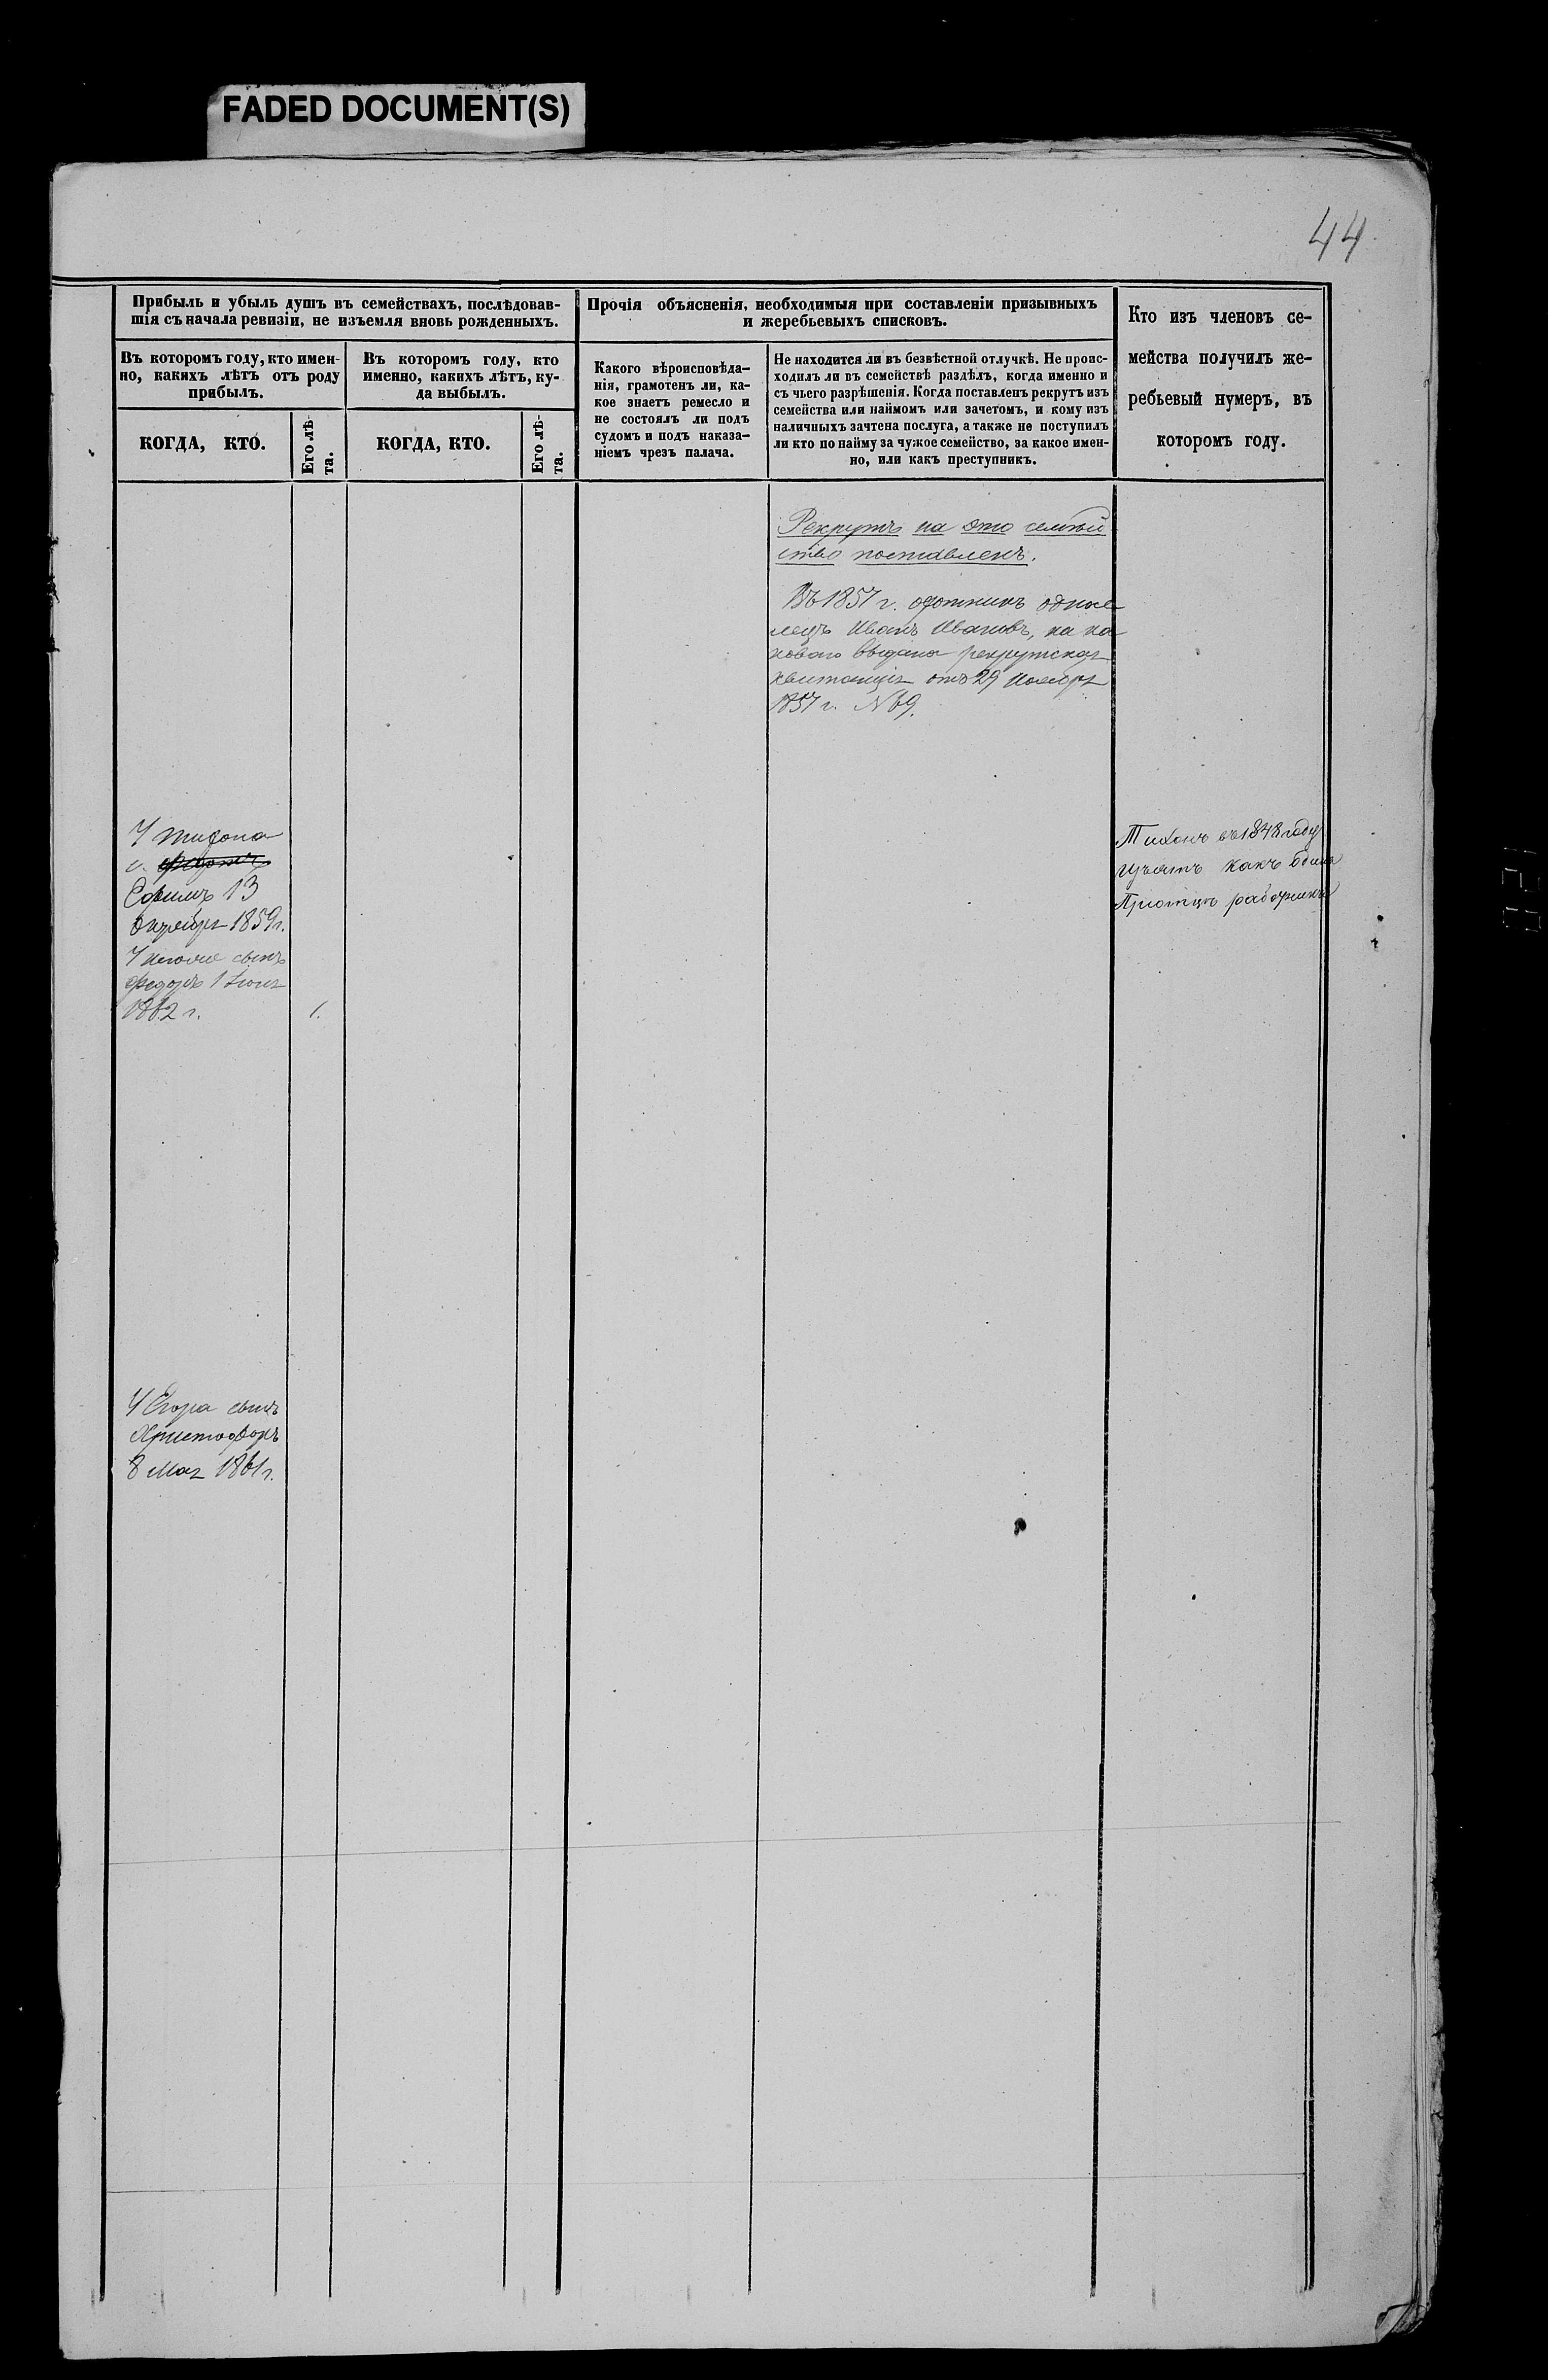 FADED DOCUMENT(S)
44.
Прибыль и убыль душъ въ семействахъ, послѣдовав-
шія съ начала ревизіи, не изъемля вновь рожденныхъ.
Въ которомъ году, кто имен-
но, какихъ лѣтъ отъ роду
прибылъ.
КОГДА, КТО.
Его лѣ-
та.
Въ которомъ году, кто
именно, какихъ лѣтъ, ку-
да выбылъ.
КОГДА, КТО.
Его лѣ-
та.
Прочія объясненія, необходимыя при составленіи призывныхъ
и жеребьевыхъ списковъ.
Какого вѣроисповѣда-
нія, грамотенъ ли, ка-
кое знаетъ ремесло и
не состоялъ ли подъ
судомъ и подъ наказа-
ніемъ чрезъ палача.
Не находится ли въ безвѣстной отлучкѣ. Не проис-
ходилъ ли въ семействѣ раздѣлъ, когда именно и
съ чьего разрѣшенія. Когда поставленъ рекрутъ изъ
семейства или наймомъ или зачетомъ, и кому изъ
наличныхъ зачтена послуга, а также не поступилъ
ли кто по найму за чужое семейство, за какое имен-
но, или какъ преступникъ.
Кто изъ членовъ се-
мейства получилъ же-
ребьевый нумеръ, въ
которомъ году.
Рекрутъ на это семѣй
ство поставленъ.
Въ 1857 г. охотникъ
Иванъ Ивановъ, на ка
коваго выдана рекрутская
квитанція отъ 29 Ноября
1857 г. №
У Тихона
с.
Ефимъ 13
Октября 1859 г.
У него же сынъ
Федоръ 1 Іюня
1862 г.
1.
Тихонъ въ 1848 году
изъятъ какъ один
При отцѣ работникъ
У Егора сынъ
Христофоръ
8 Мая 1861 г.